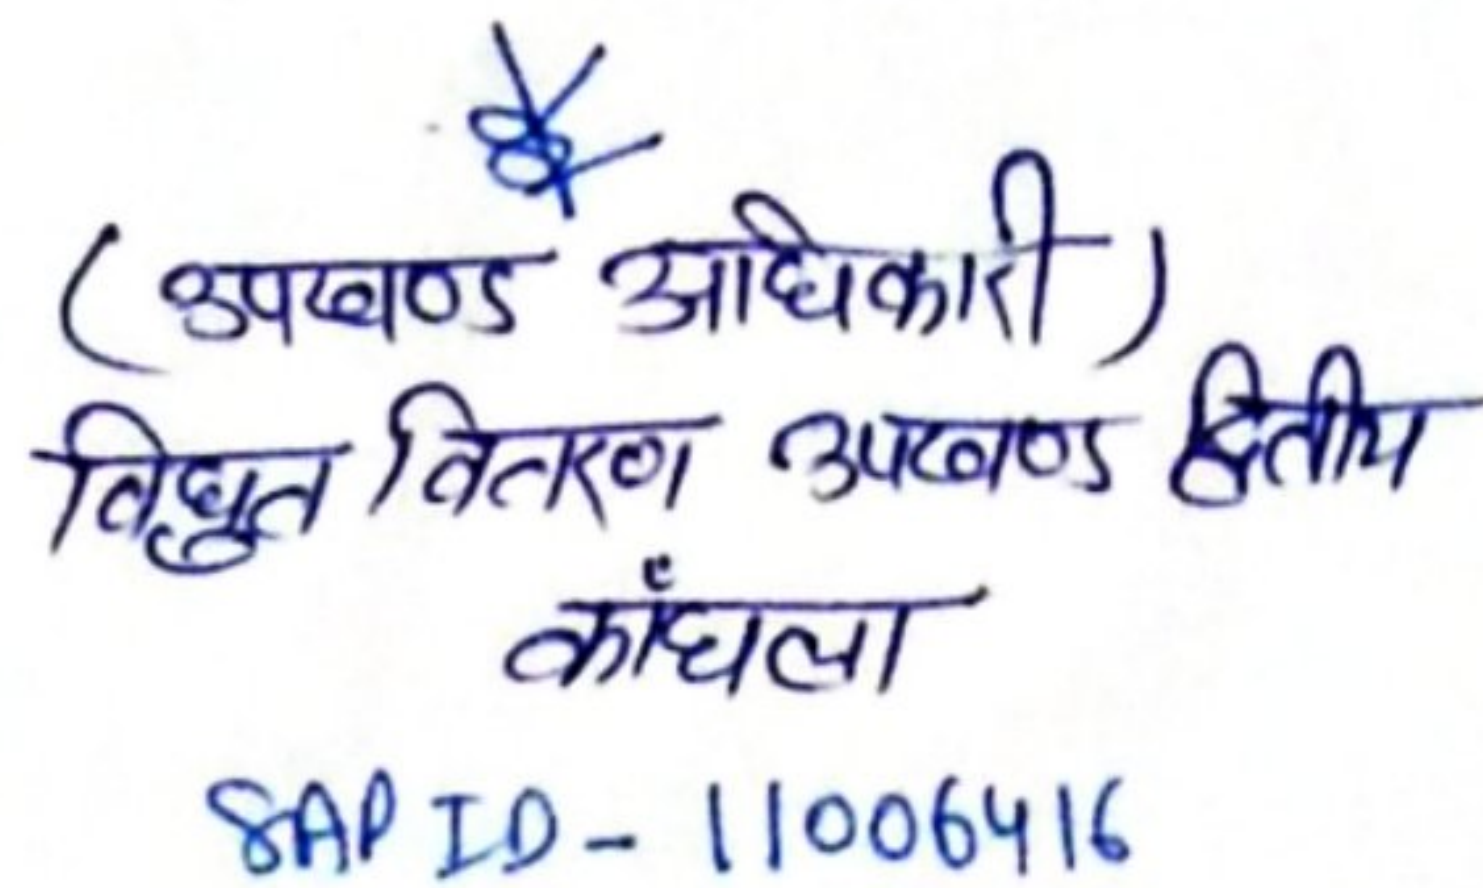 (उपखण्ड अधिकारी)
विधुत वितरण उपखण्ड द्वितीय
कांधला
SAP ID - 11006416